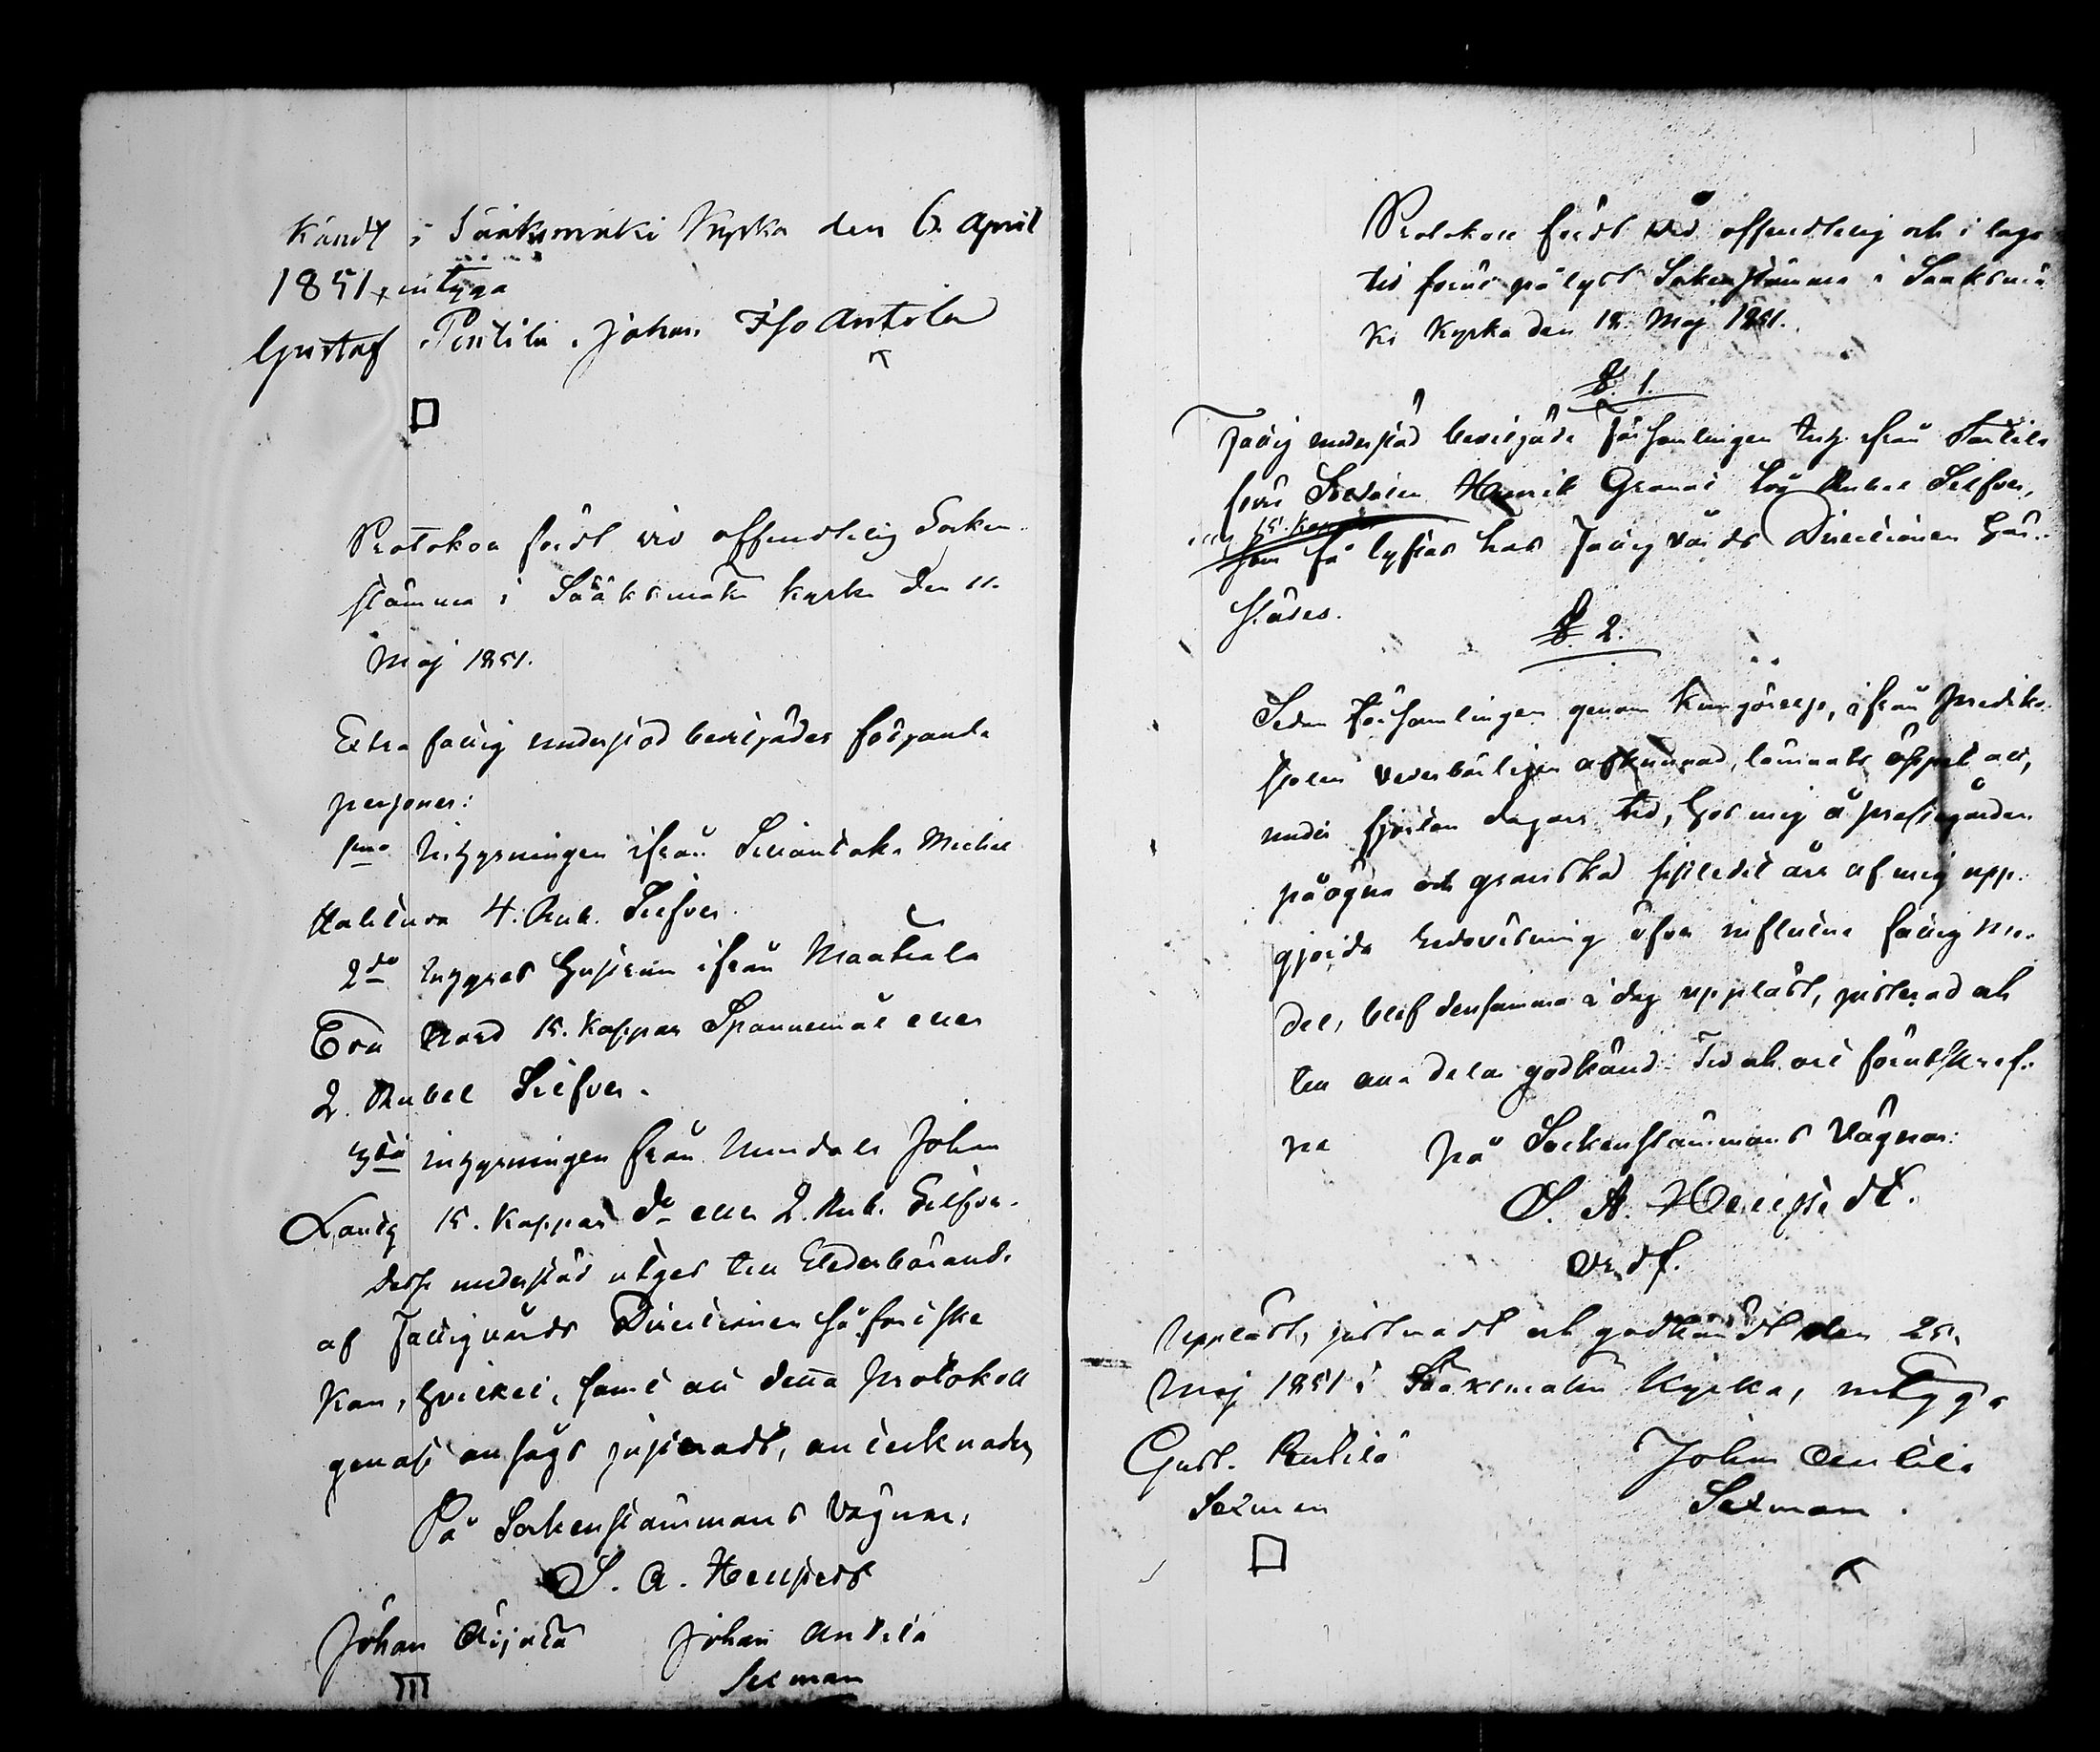 kändt i Sääksmäki Kyrka den 6 April
1851, intyga
Gustaf Pentila. Johan Iso Antola
Protokoll fördt vid offendtelig Socken
stämma i Sääksmäki kyrka den 11.
Maj 1851.
Extra fattig understöd beviljades följande
personer:
1mo Inhysningen ifrån Michel
4. Rub. Silfver.
2do Inhyses Hustrun ifrån Maatiala
Eva Nord 15. Kappar Spannemål eller
2. Rubel Silfver.
3tio inhysningen från Johan
15. Kappar do eller 2. Rub. Silfver.
Dessa understöd utges till Vederbörande
af Fattigvårds Directionen så, fort ske
kan, hvilket, samt att detta Protokoll
genast ansågs justeradt, antecknades
På Sockenstämmans Vägnar,
S. A. Hellstedt
Johan Äijälä Johan Antila
Sexman
Protokoll fördt vid offendtelig och i laga
tid förut pålyst Sockenstämma i Sääksmä
ki Kyrka den 18. Maj 1851.
§. 1.
Fattig understöd beviljade Församlingen ifrån
förre Soldaten Henrik Granat två Rubel Silfver,
15. Kappar
som få lyftas hos Fattigvårds Directionen här
städes.
§. 2.
Sedan Församlingen genom Kungörelse, ifrån Prediko
stolen vederbörligen afkunnad, lämnats öppet att,
under fjorton dagars tid, hos mig å prestgården
påögna och granska sistledit år af mig upp-
gjorda Redovisning öfver influtne fattig me-
del, blef densamma i dag uppläst, justerad och
till alla delar godkänd. Tid och ort förutskref-
ne På Sockenstämmans Vägnar:
S. A. Hellstedt.
Ordf.
Uppläst, justeradt och godkändt den 25.
Maj 1851 i Sääksmäki Kyrka, intyga
Gust. Pentilä Johan Antila
Sexman Sexman.